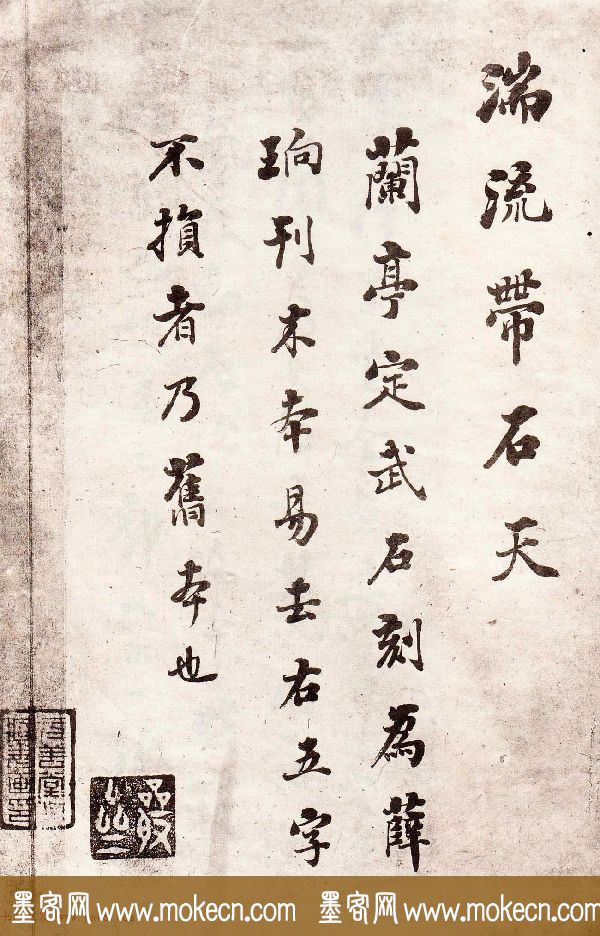 湍流帶石天
蘭亭定武石刻為薛
珦刊木本易去右五字
不損者乃舊本也
墨客网 www.mokecn.com 墨客网 www.mokecn.com